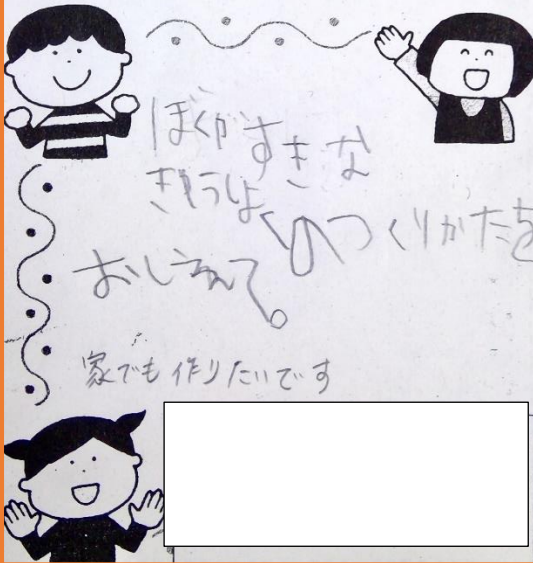 ぼくがすきな
きゅうしょ
くのつくりかたを
おしえて。
家でも作りたいです